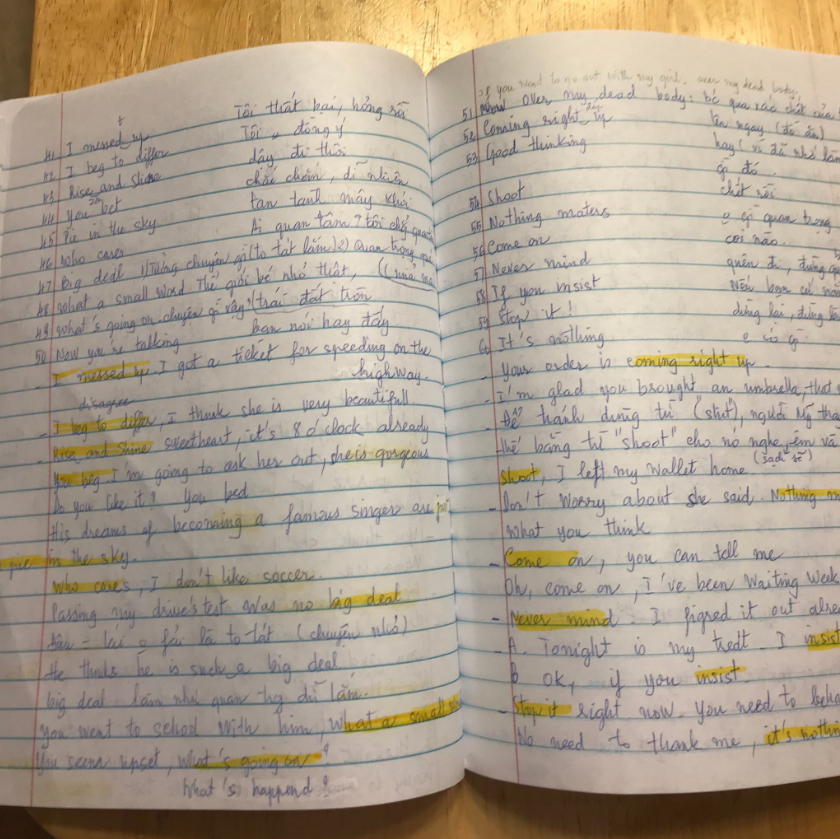 41 I messed up Tôi thất bại, hỏng rồi
42 I beg to differ Tôi o đồng ý
43 Rise and Shine dậy đi thôi
44 You bet chắc chắn, dĩ nhiên
45 Pie in the sky tan tành mây khói
46 Who cares Ai quan tâm? tôi chả quan
47 Big deal 1) Tưởng chuyện gì (to tát lắm) 2) quan trọng
48 What a small word Thế giới bé nhỏ thật,
(trái đất tròn
49 What's going on chuyện gì vậy
50 Now you're talking bạn nói hay đấy
- I messed up I got a ticket for speeding on the
highway.
disagree
- I beg to differ, I think she is very beautifull
- Rise and Shine sweetheart, it's 8 o'clock already
You beg I'm going to ask her out, she is gorgeous
Do you like it? You bed
His dreams of becoming a famous singer are
pie in the sky.
Who cares, I don't like soccer.
Passing my drive's test was no big deal
(chuyện nhỏ)
He thinks he is such a big deal
big deal làm như quan lắm.
You went to school with him, What a small
You seem upset, What's going on?
What's happend?
If you want to go out with my girl, over my dead body.
51 over my dead body: bước qua xác chết của
52 Coming right up lên ngay (đồ ăn)
53 Good thinking hay (vì đã nhớ làm
gì đó.
54 Shoot chết rồi
55 Nothing maters o gì quan trọng
56 Come on coi nào.
57 Never mind quên đi, đừng
58 If you insist Nếu bạn cứ
59 Stop it! dừng lại, đừng
60 It's nothing o có gì
- Your order is coming right up.
- I'm glad you brought an umbrella, that
- Để tránh dùng từ "shit", người Mỹ
thế bằng từ "shoot" cho nó nghe êm và
(sạch sẽ)
shoot, I left my wallet home
- Don't worry about she said. Nothing
What you think
- Come on, you can tell me
Oh, come on, I've been waiting week
- Never mind. I figred it out
- A. Tonight is my tredt. I insist
B ok, if you insist.
- Stop it right now. You need to
No need to thank me, it's